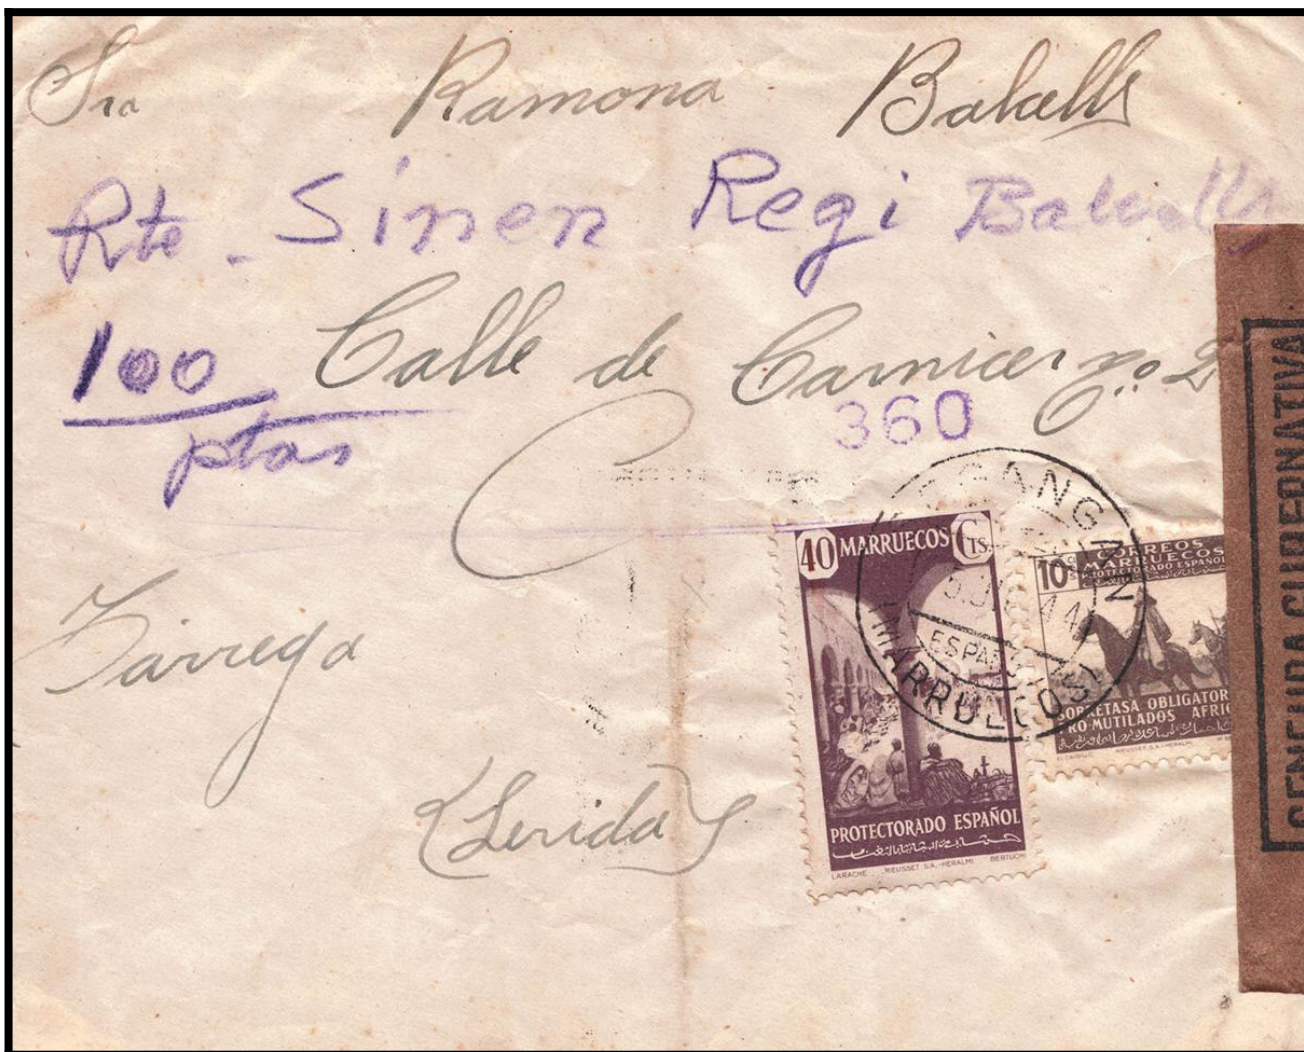 Sra Ramona Balcells
Rte. Sinen Regi Balcells
100 Calle de Carnicer nº 2
ptas
360
Tárrega
(Lerida)
40 MARRUECOS Cts.
PROTECTORADO ESPAÑOL
LARACHE RIEUSSET S.A.-HERALMI BERTUCHI
10
CORREOS
MARRUECOS
PROTECTORADO ESPAÑOL
SOBRETASA OBLIGATOR
PRO MUTILADOS AFRIC
RIEUSSET S.A.-HERALMI
TARGANGMAN
ESPAÑOL
(MARRUECOS)
CENSURA GUBERNATIVA